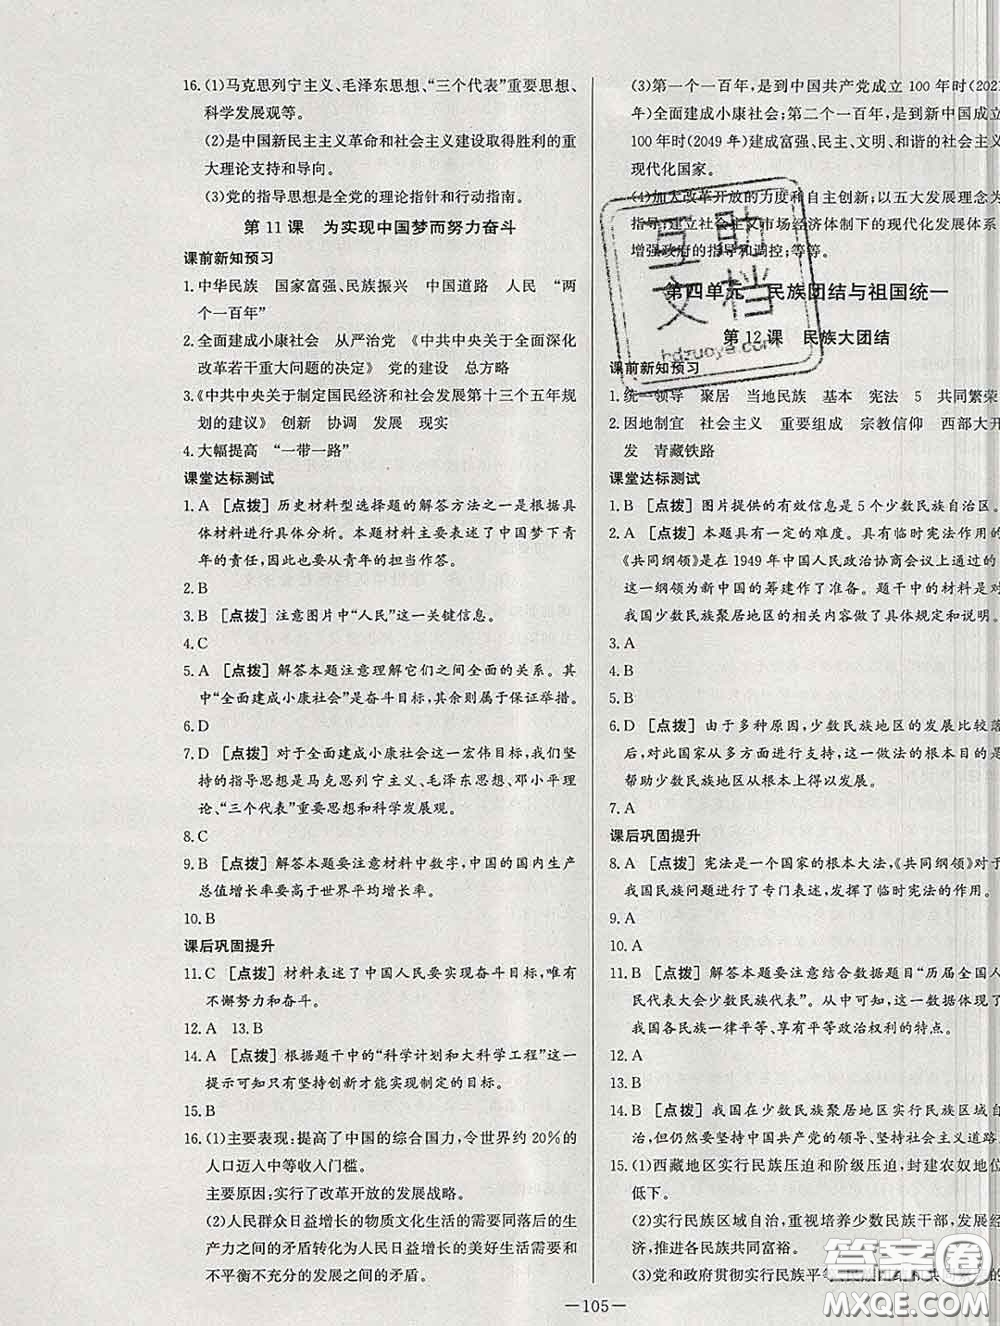 16.(1)马克思列宁主义、毛泽东思想、“三个代表”重要思想、
科学发展观等。
(2)是中国新民主主义革命和社会主义建设取得胜利的重
大理论支持和导向。
(3)党的指导思想是全党的理论指针和行动指南。
第11课 为实现中国梦而努力奋斗
课前新知预习
1.中华民族 国家富强、民族振兴 中国道路 人民 “两
个一百年”
2.全面建成小康社会 从严治党 《中共中央关于全面深化
改革若干重大问题的决定》 党的建设 总方略
3.《中共中央关于制定国民经济和社会发展第十三个五年规
划的建议》 创新 协调 发展 现实
4.大幅提高 “一带一路”
课堂达标测试
1.A [点拨] 历史材料型选择题的解答方法之一是根据具
体材料进行具体分析。本题材料主要表述了中国梦下青
年的责任,因此也要从青年的担当作答。
2.B
3.B [点拨] 注意图片中“人民”这一关键信息。
4.C
5.A [点拨] 解答本题注意理解它们之间全面的关系。其
中“全面建成小康社会”是奋斗目标,其余则属于保证举措。
6.D
7.D [点拨] 对于全面建成小康社会这一宏伟目标,我们坚
持的指导思想是马克思列宁主义、毛泽东思想、邓小平理
论、“三个代表”重要思想和科学发展观。
8.C
9.B [点拨] 解答本题要注意材料中数字,中国的国内生产
总值增长率要高于世界平均增长率。
10.B
课后巩固提升
11.C [点拨] 材料表述了中国人民要实现奋斗目标,唯有
不懈努力和奋斗。
12.A 13.B
14.A [点拨] 根据题干中的“科学计划和大科学工程”这一
提示可知只有坚持创新才能实现制定的目标。
15.B
16.(1)主要表现:提高了中国的综合国力,令世界约20%的
人口迈入中等收入门槛。
主要原因:实行了改革开放的发展战略。
(2)人民群众日益增长的物质文化生活的需要同落后的生
产力之间的矛盾转化为人民日益增长的美好生活需要和
不平衡不充分的发展之间的矛盾。
(3)第一个一百年,是到中国共产党成立100年时(2021
年)全面建成小康社会;第二个一百年,是到新中国成立
100年时(2049年)建成富强、民主、文明、和谐的社会主义
现代化国家。
(4)加大改革开放的力度和自主创新;以五大发展理念为
指导;建立社会主义市场经济体制下的现代化发展体系
增强政府的指导和调控;等等。
第四单元 民族团结与祖国统一
第12课 民族大团结
课前新知预习
1.统一领导 聚居 当地民族 基本 宪法 5 共同繁荣
2.因地制宜 社会主义 重要组成 宗教信仰 西部大开
发 青藏铁路
课堂达标测试
1.B [点拨] 图片提供的有效信息是5个少数民族自治区。
2.A [点拨] 本题具有一定的难度。具有临时宪法作用的
《共同纲领》是在1949年中国人民政治协商会议上通过的
这一纲领为新中国的筹建作了准备。题干中的材料是对
我国少数民族聚居地区的相关内容做了具体规定和说明。
3.A
4.B
5.B
6.D [点拨] 由于多种原因,少数民族地区的发展比较落
后,对此国家从多方面进行支持,这一做法的根本目的是
帮助少数民族地区从根本上得以发展。
7.A
课后巩固提升
8.A [点拨] 宪法是一个国家的根本大法,《共同纲领》对于
我国民族问题进行了专门表述,发挥了临时宪法的作用。
9.A
10.A
11.B [点拨] 解答本题要注意结合数据题目“历届全国人
民代表大会少数民族代表”。从中可知,这一数据体现了
我国各民族一律平等、享有平等政治权利的特点。
12.A
13.B
14.B [点拨] 我国在少数民族聚居地区实行民族区域自
治,但仍然要坚持中国共产党的领导、坚持社会主义道路
15.(1)西藏地区实行民族压迫和阶级压迫,封建农奴地位
低下。
(2)实行民族区域自治,重视培养少数民族干部,发展经济
建设,促进各民族共同富裕。
(3)党和政府贯彻实行民族平等、民族团结和共
互助
文档
hdzuoye.com
答案圈
MXQE.COM
—105—